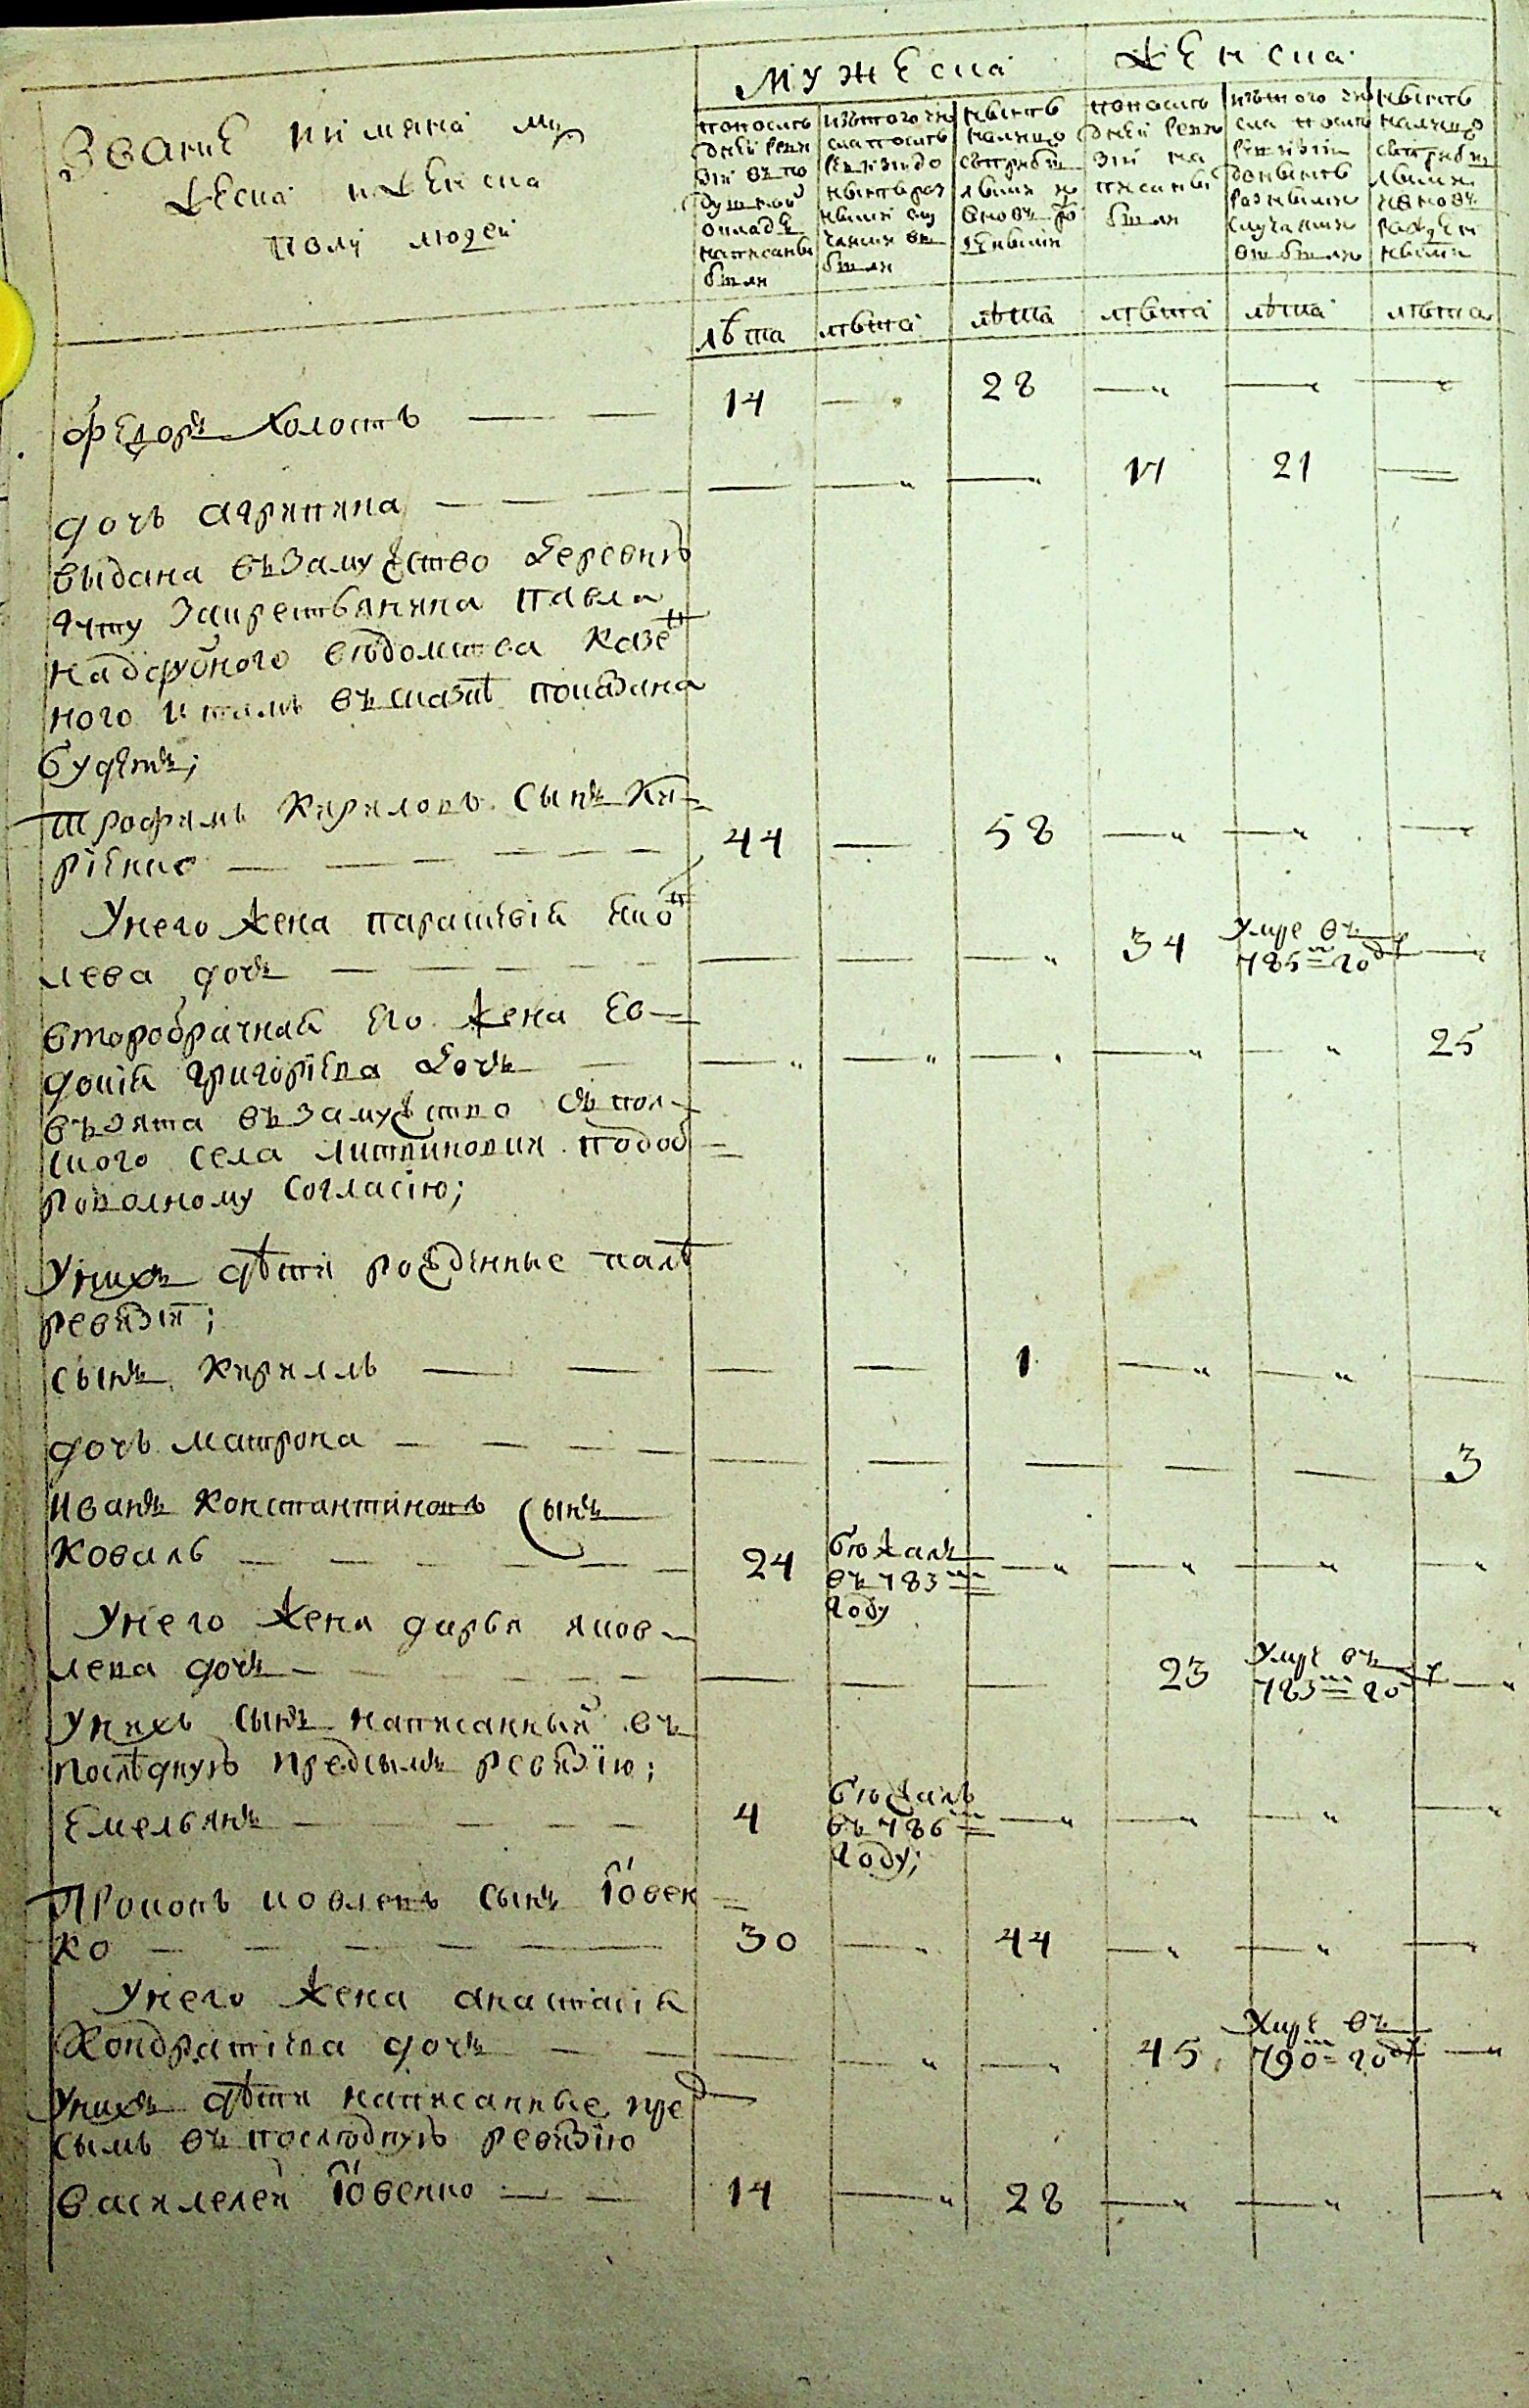 МУЖЕСКА
ЖЕНСКА
Званіе и имяна му
жеска и женска
полу людей
попослѣ
дней реви
зіи въ по
душной
окладъ
написаны
были
изътого чи
сла послѣ
ревизіи до
нынѣ раз
ными слу
чаями вы
были
нынѣ
налицо
съприбы
лыми и
вновь ро
жденными
попослѣ
дней реви
зіи на
писаны
были
изътого чи
сла послѣ
ревизіи
донынѣ
разными
случаями
выбыли
нынѣ
налицо
съприбы
лыми
и вновь
рожден
ными
лѣта лѣта лѣта лѣта лѣта лѣта
Федоръ холостъ — — 14 — 28 — — —
дочь агрипина — — — — — 14 21 —
выдана въ замужство деревнѣ
Павла
надсудного вѣдомства казен
ного и тамъ въ сказкѣ показана
будетъ;
Трофимъ Кириловъ сынъ Ки-
ріенко — — — 44 — 58 — — —
Унего жена параскевія яко
лева дочь — — — — — 34 умре въ 785м году —
второбрачная его жена Ев-
докія григоріева дочь — — — — — — 25
възята въ замужство съ пол-
ского села Литвиновки подоб-
ровольному согласію;
Унихъ дѣти рожденные послѣ
ревизіи;
сынъ Кирилъ — — — — 1 — — —
дочь матрона — — — — — — — 3
Иванъ Константиновъ сынъ
Коваль — — 24 бѣжалъ въ 783м году — — — —
Унего жена дарья яков-
лева дочь — — — — 23 умре въ 783м году —
Унихъ сынъ написанный въ
послѣдную предсымъ ревизію;
Емельянъ — — 4 бѣжалъ въ 786м году; — — — —
Прокопъ иовлевъ сынъ Іовен-
ко — — — 30 — 44 — — —
Унего жена анастасія
Кондратіева дочь — — — — 45 умре въ 790м году —
Унихъ дѣти написанные пред
сымъ въ послѣдную ревизію
василелей Іовенко — — 14 — 28 — — —